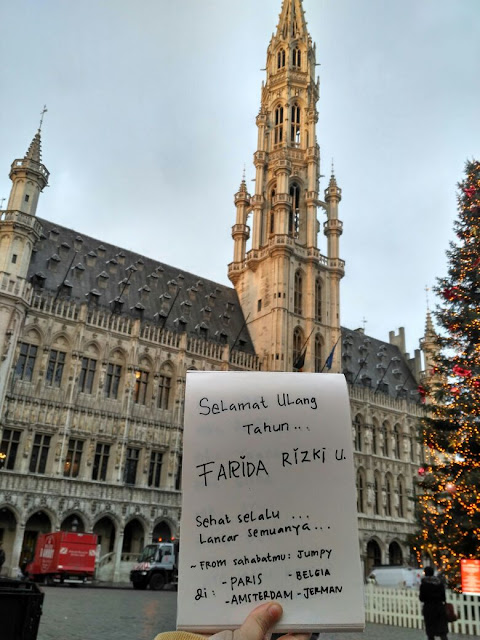 Selamat Ulang
Tahun...
FARIDA RIZKI U.
Sehat selalu ...
Lancar semuanya...
~ From sahabatmu: Jumpy
di: - PARIS - BELGIA
- AMSTERDAM - JERMAN